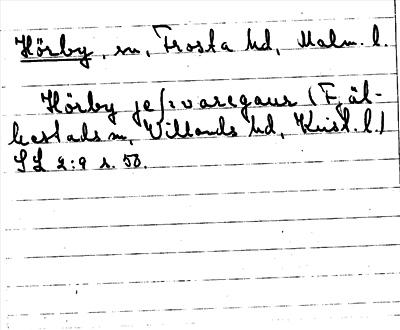 Hörby, sn, Frosta hd, Malm. l.
Hörby (Fjäl-
kestads sn, Villands hd, Krist. l.)
SL 2:9 s. 50.